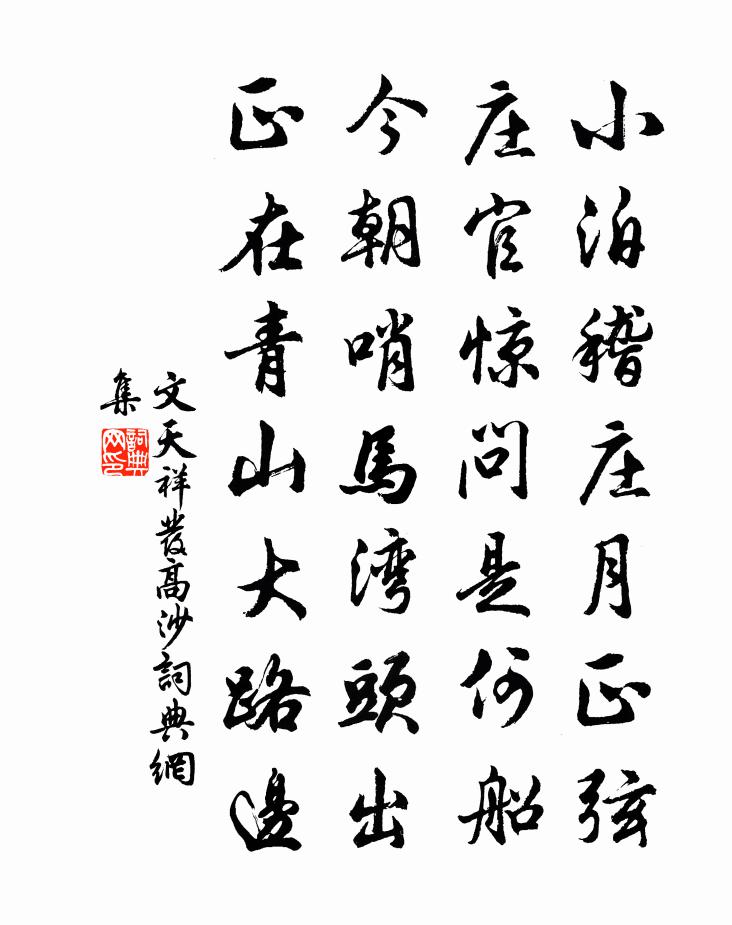 小泊稽庄月正弦
庄官惊问是何船
今朝哨馬湾頭出
正在青山大路邊
文天祥發高沙詞典網
集
詞典
网印